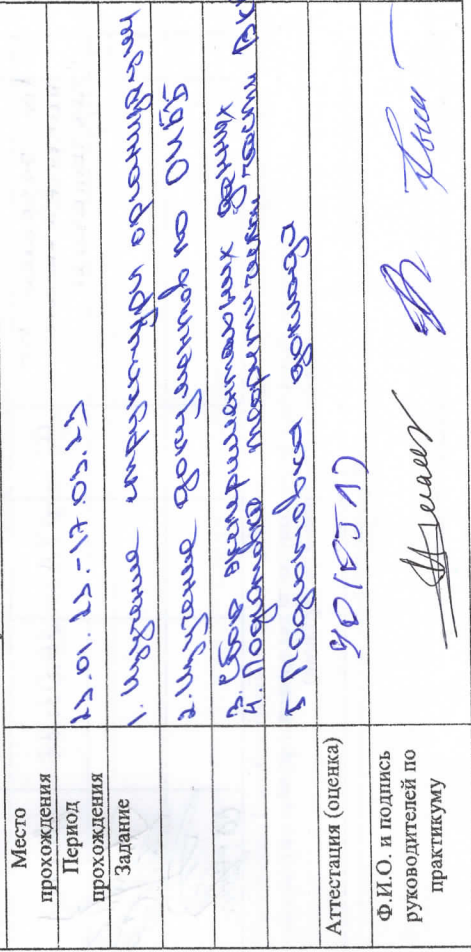 Место прохождения
Период прохождения 23.01.23.-17.03.23
Задание 1. Изучение структуры организации
2. Изучение документов по ОИББ
3. Сбор экспериментальных данных
4. Подготовка теоретической части ВК
5 Подготовка доклада
Аттестация (оценка) 90
Ф.И.О. и подпись руководителей по практикуму